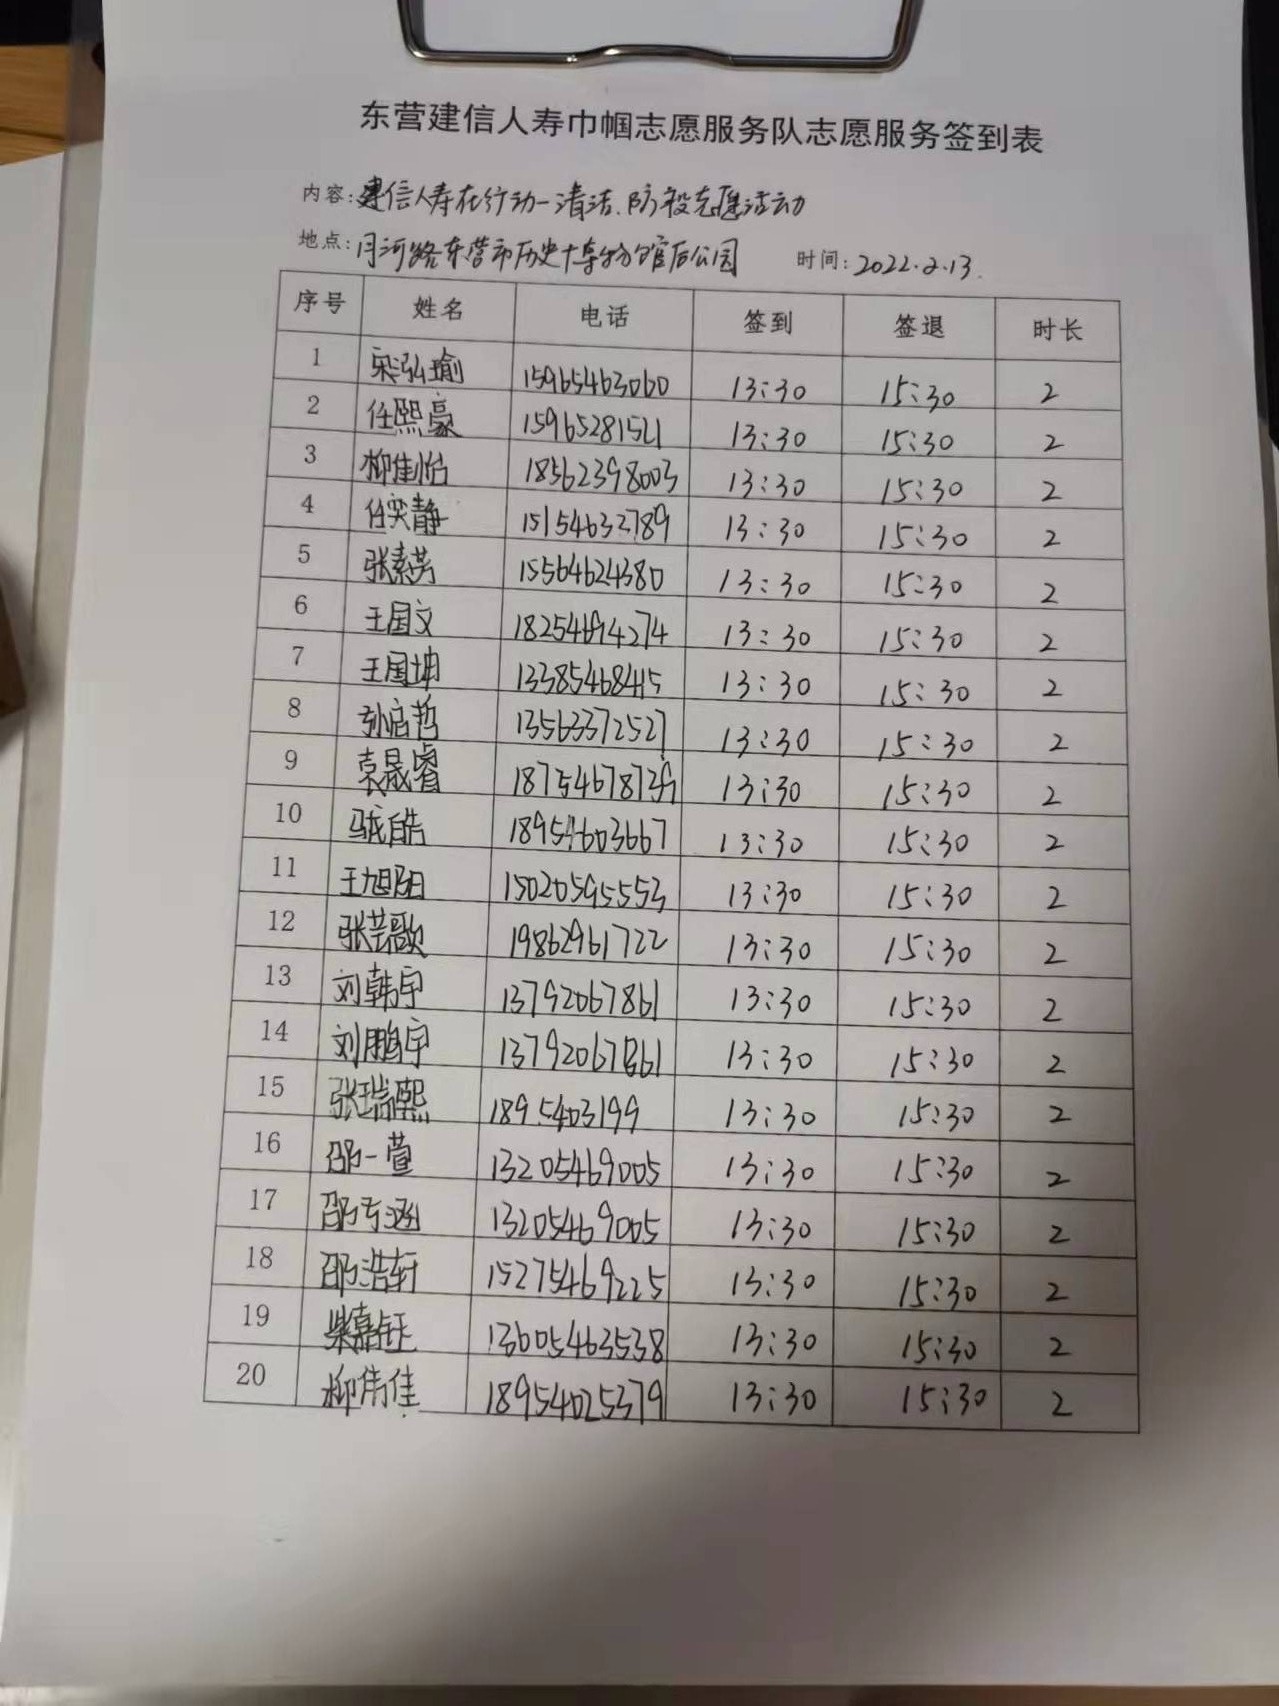 东营建信人寿巾帼志愿服务队志愿服务签到表
内容：建信人寿在行动—清洁、防疫志愿活动
地点：月河路东营市历史博物馆后公园 时间：2022.2.13.
序号 姓名 电话 签到 签退 时长
1 宋泓瑜 15965463060 13:30 15:30 2
2 任熙豪 15965281521 13:30 15:30 2
3 柳佳怡 18562398003 13:30 15:30 2
4 任笑静 15154632789 13:30 15:30 2
5 张素芳 15564624380 13:30 15:30 2
6 王国文 18254694274 13:30 15:30 2
7 王国坤 13385468415 13:30 15:30 2
8 孙启哲 13563372527 13:30 15:30 2
9 袁晟睿 13:30 15:30 2
10 皓 18954603667 13:30 15:30 2
11 王旭阳 15020595553 13:30 15:30 2
12 张芸歌 19862961722 13:30 15:30 2
13 刘韩宇 13792067861 13:30 15:30 2
14 刘鹏宇 13792067861 13:30 15:30 2
15 张瑞熙 1895403199 13:30 15:30 2
16 邵一萱 13205469005 13:30 15:30 2
17 邵 涵 13205469005 13:30 15:30 2
18 邵浩轩 15275469225 13:30 15:30 2
19 柴嘉钰 13605463538 13:30 15:30 2
20 柳伟佳 18954025379 13:30 15:30 2